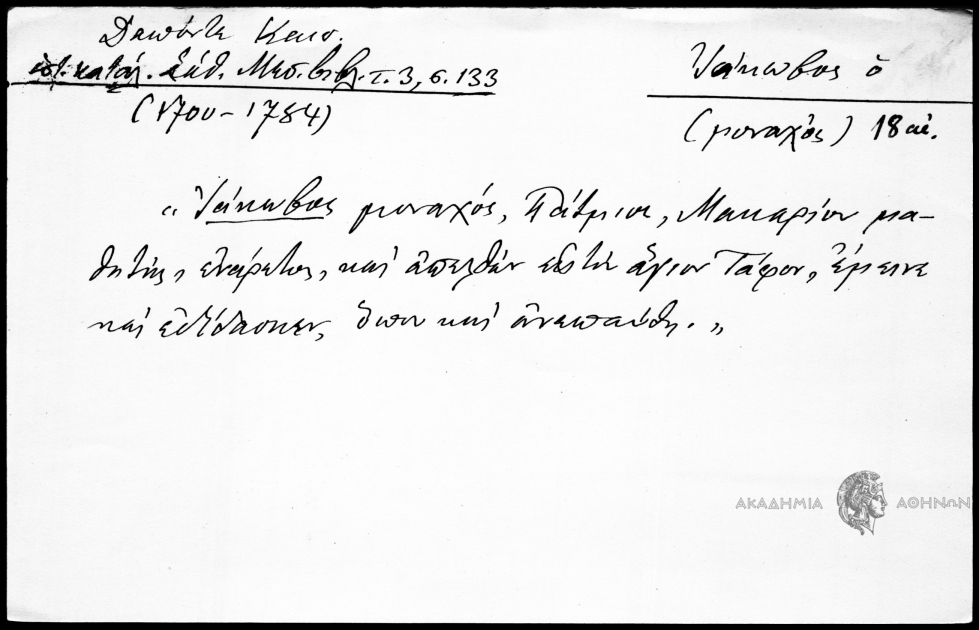 Δαπόντε Καισ.
ἱστ. κατάλ. Σάθ. Μεσ. βιβλ. τ. 3, σ. 133
(1700-1784)
Ἰάκωβος ὁ
(μοναχός) 18 αἰ.
"Ἰάκωβος μοναχός, Πάτμιος, Μακαρίου μα-
θητής, ἐνάρετος, καὶ ἀπελθὼν εἰς τὸν ἅγιον Τάφον, ἔμεινε
καὶ ἐδίδασκεν, ὅπου καὶ ἀνεπαύθη."
ΑΚΑΔΗΜΙΑ ΑΘΗΝΩΝ